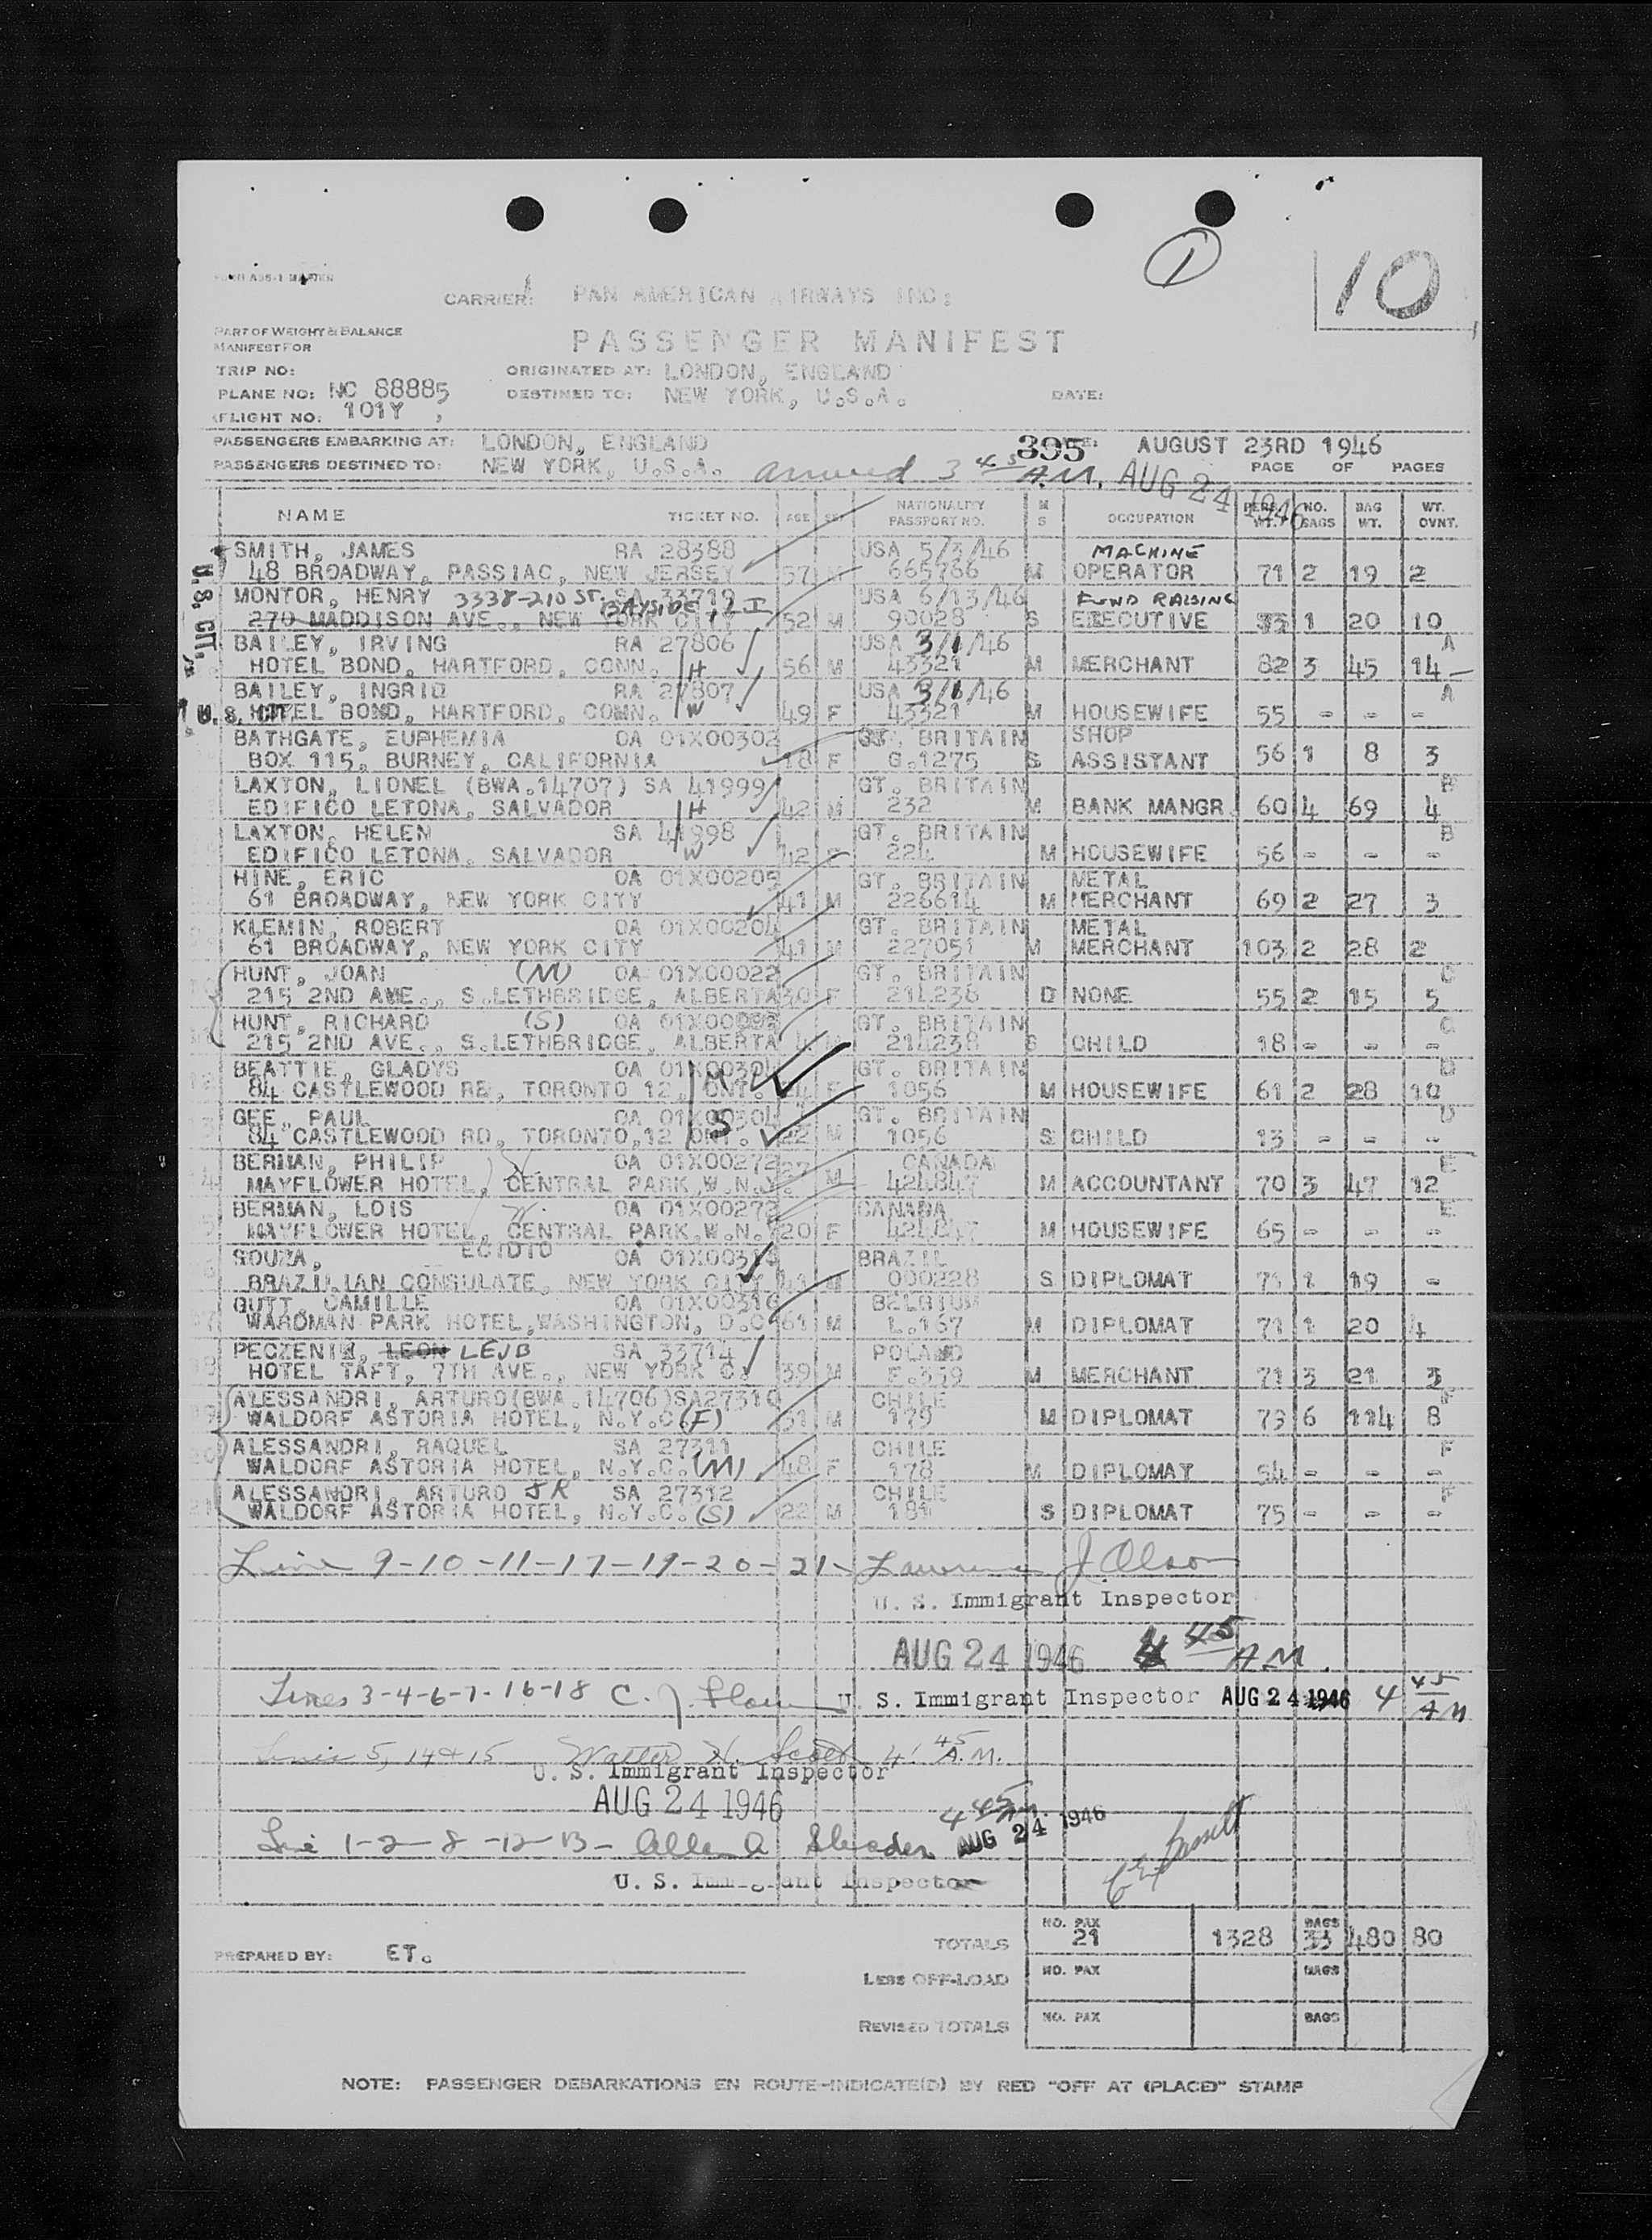 ①
10
FORM ADS-1 MASTER
CARRIER: PAN AMERICAN AIRWAYS INC:
PART OF WEIGHT & BALANCE
MANIFEST FOR
PASSENGER MANIFEST
TRIP NO: ORIGINATED AT: LONDON, ENGLAND
PLANE NO: NC 88885 DESTINED TO: NEW YORK, U.S.A. DATE:
FLIGHT NO: 101Y ,
PASSENGERS EMBARKING AT: LONDON, ENGLAND 395 AUGUST 23RD 1946
PASSENGERS DESTINED TO: NEW YORK, U.S.A. arrived 3 45 A.M. AUG 24 1946 PAGE OF PAGES
NAME TICKET NO. AGE SEX NATIONALITY PASSPORT NO. M S OCCUPATION PERS. WT. NO. BAGS BAG WT. WT. OVNT.
SMITH, JAMES RA 28388 USA 5/3/46 MACHINE
48 BROADWAY, PASSIAC, NEW JERSEY 57 M 665766 M OPERATOR 71 2 19 2
MONTOR, HENRY 3338-210 ST. SA 33719 USA 6/13/46 FUND RAISING
BAYSIDE, L I
270 MADDISON AVE., NEW YORK CITY 52 M 90028 S EXECUTIVE 1 20 10
U.S. CIT.
BAILEY, IRVING RA 27806 USA 3/1/46 A
HOTEL BOND, HARTFORD, CONN. H 56 M 43321 M MERCHANT 82 3 45 14
BAILEY, INGRID RA 27807 USA 3/1/46 A
U.S. CIT. HOTEL BOND, HARTFORD, CONN. W 49 F 43321 M HOUSEWIFE 55 - - -
BATHGATE, EUPHEMIA OA 01X00302 GT. BRITAIN SHOP
BOX 115, BURNEY, CALIFORNIA 18 F G.1275 S ASSISTANT 56 1 8 3
LAXTON, LIONEL (BWA.14707) SA 41999 GT. BRITAIN B
EDIFICO LETONA, SALVADOR H 42 M 232 M BANK MANGR. 60 4 69 4
LAXTON, HELEN SA 41998 GT. BRITAIN B
EDIFICO LETONA, SALVADOR W 42 F 224 M HOUSEWIFE 56 - - -
HINE, ERIC OA 01X00205 GT. BRITAIN METAL
61 BROADWAY, NEW YORK CITY 41 M 226614 M MERCHANT 69 2 27 3
KLEMIN, ROBERT OA 01X00204 GT. BRITAIN METAL
61 BROADWAY, NEW YORK CITY 41 M 227051 M MERCHANT 103 2 28 2
HUNT, JOAN (M) OA 01X00022 GT. BRITAIN C
215 2ND AVE., S.LETHBRIDGE, ALBERTA 30 F 214236 D NONE 55 2 15 5
HUNT, RICHARD (S) OA GT. BRITAIN C
215 2ND AVE., S.LETHBRIDGE, ALBERTA 4 M 214238 S CHILD 18 - - -
BEATTIE, GLADYS OA 01X00304 GT. BRITAIN D
84 CASTLEWOOD RD, TORONTO 12, ONT. M F 1056 M HOUSEWIFE 61 2 28 10
GEE, PAUL OA 01X00304 GT. BRITAIN D
84 CASTLEWOOD RD, TORONTO,12 ONT. S M 1056 S CHILD 13 - - -
BERMAN, PHILIP H. OA 01X00272 CANADA E
MAYFLOWER HOTEL, CENTRAL PARK.W.N.Y. 27 M 424847 M ACCOUNTANT 70 3 47 12
BERMAN, LOIS W. OA 01X00273 CANADA E
MAYFLOWER HOTEL, CENTRAL PARK.W.N.Y 20 F 424847 M HOUSEWIFE 65 - - -
SOUZA, EGIDIO OA 01X00314 BRAZIL
BRAZILIAN CONSULATE, NEW YORK CITY 41 M 000228 S DIPLOMAT 71 1 19 -
GUTT, CAMILLE OA 01X00316 BELGIUM
WARDMAN PARK HOTEL,WASHINGTON, D.C 61 M L.167 M DIPLOMAT 71 1 20 4
PECZENIK, LEON LEJB SA 33714 POLAND
HOTEL TAFT, 7TH AVE., NEW YORK C. 39 M F.359 M MERCHANT 71 3 21 3
ALESSANDRI, ARTURO(BWA.14706)SA27310 CHILE F
WALDORF ASTORIA HOTEL, N.Y.C (F) 51 M 179 M DIPLOMAT 73 6 114 8
ALESSANDRI, RAQUEL SA 27311 CHILE F
WALDORF ASTORIA HOTEL, N.Y.C. (M) 48 F 178 M DIPLOMAT 54 - - -
ALESSANDRI, ARTURO JR SA 27312 CHILE F
WALDORF ASTORIA HOTEL, N.Y.C. (S) 22 M 181 S DIPLOMAT 75 - - -
Line 9-10-11-17-19-20-21- Lawrence J Olson
U. S. Immigrant Inspector
AUG 24 1946 4 45 AM.
Lines 3-4-6-7-16-18 C. J. U. S. Immigrant Inspector AUG 24 1946 4 45 AM
Lines 5, 14 & 15 Walter H. Scott 4:45 A.M.
U. S. Immigrant Inspector
AUG 24 1946
4 45 AUG 24 1946
Line 1-2-8-12-13- Allen A
U. S. Immigrant Inspector
TOTALS NO. PAX 21 1328 BAGS 33 480 80
PREPARED BY: ET.
LESS OFF-LOAD NO. PAX BAGS
REVISED TOTALS NO. PAX BAGS
NOTE: PASSENGER DEBARKATIONS EN ROUTE-INDICATE(D) BY RED "OFF AT (PLACE)" STAMP